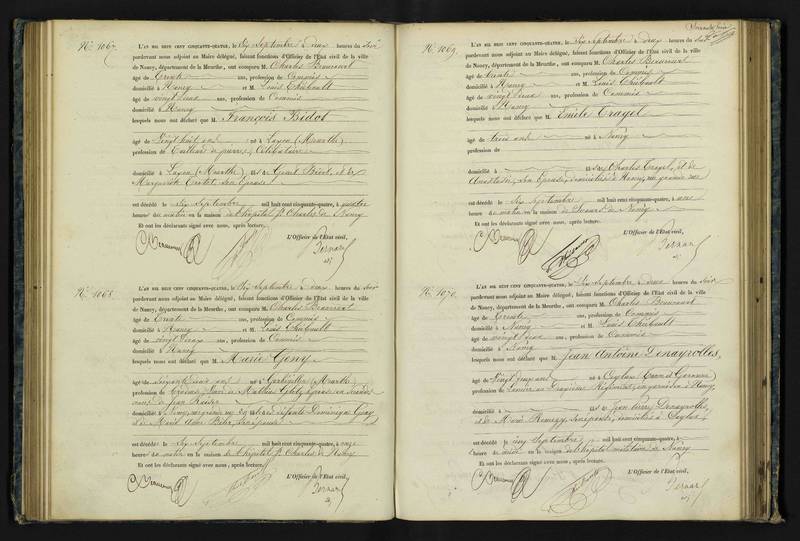 N.º 1067.
L'AN MIL HUIT CENT CINQUANTE-QUATRE, le Six Septembre à deux heures du Soir
pardevant nous adjoint au Maire délégué, faisant fonctions d'Officier de l'État civil de la ville
de Nancy, département de la Meurthe, ont comparu M. Charles Beauvood
âgé de trente ans, profession de Commis
domicilié à Nancy et M. Louis Thiébault
âgé de vingt deux ans, profession de Commis
domicilié à Nancy
lesquels nous ont déclaré que M. François Bidot
âgé de Vingt huit ans né à Laxou (Meurthe)
profession de Tailleur de pierre, Célibataire
domicilié à Laxou (Meurthe) fils de Bidot, et de
Marguerite son Epouse
est décédé le Six Septembre mil huit cent cinquante-quatre, à quatre
heures du matin en la maison de l'hôpital St Charles de Nancy
Et ont les déclarants signé avec nous, après lecture.
L'Officier de l'État civil,
Bernard
N.º 1068.
L'AN MIL HUIT CENT CINQUANTE-QUATRE, le Six Septembre à deux heures du Soir
pardevant nous adjoint au Maire délégué, faisant fonctions d'Officier de l'État civil de la ville
de Nancy, département de la Meurthe, ont comparu M. Charles
âgé de trente ans, profession de Commis
domicilié à Nancy et M. Louis Thiébault
âgé de vingt deux ans, profession de Commis
domicilié à Nancy
lesquels nous ont déclaré que M. Marie Geny
âgé de Soixante deux ans né à (Meurthe)
profession de Veuve de Mathieu Epouse en secondes
noces de Jean
domicilié à Nancy, fille de défunts Dominique Geny
et de Marie Anne son épouse
est décédé le Six Septembre mil huit cent cinquante-quatre, à onze
heures du matin en la maison de l'hôpital St Charles de Nancy
Et ont les déclarants signé avec nous, après lecture.
L'Officier de l'État civil,
Bernard
N.º 1069.
L'AN MIL HUIT CENT CINQUANTE-QUATRE, le Six Septembre à deux heures du Soir
pardevant nous adjoint au Maire délégué, faisant fonctions d'Officier de l'État civil de la ville
de Nancy, département de la Meurthe, ont comparu M. Charles
âgé de trente ans, profession de Commis
domicilié à Nancy et M. Louis Thiébault
âgé de vingt deux ans, profession de Commis
domicilié à Nancy
lesquels nous ont déclaré que M. Emile Trayel
âgé de trois ans né à Nancy
profession de
domicilié à fils de Charles Trayel, et de
Anastasie, son Epouse, domiciliés à Nancy, rue
est décédé le Six Septembre mil huit cent cinquante-quatre, à une
heure du matin en la maison de Secours de Nancy
Et ont les déclarants signé avec nous, après lecture.
L'Officier de l'État civil,
Bernard
N.º 1070.
L'AN MIL HUIT CENT CINQUANTE-QUATRE, le Six Septembre à deux heures du Soir
pardevant nous adjoint au Maire délégué, faisant fonctions d'Officier de l'État civil de la ville
de Nancy, département de la Meurthe, ont comparu M. Charles
âgé de trente ans, profession de Commis
domicilié à Nancy et M. Louis Thiébault
âgé de vingt deux ans, profession de Commis
domicilié à Nancy
lesquels nous ont déclaré que M. Jean Antoine Denayrolles,
âgé de Vingt cinq ans né à Caylux (Tarn et Garonne)
profession de Lancier au Régiment, en garnison à Nancy
domicilié à fils de Jean Pierre Denayrolles,
et de Marie son épouse, domiciliés à Caylux,
est décédé le cinq Septembre mil huit cent cinquante-quatre, à
heure de en la maison de l'hôpital militaire de Nancy
Et ont les déclarants signé avec nous, après lecture.
L'Officier de l'État civil,
Bernard